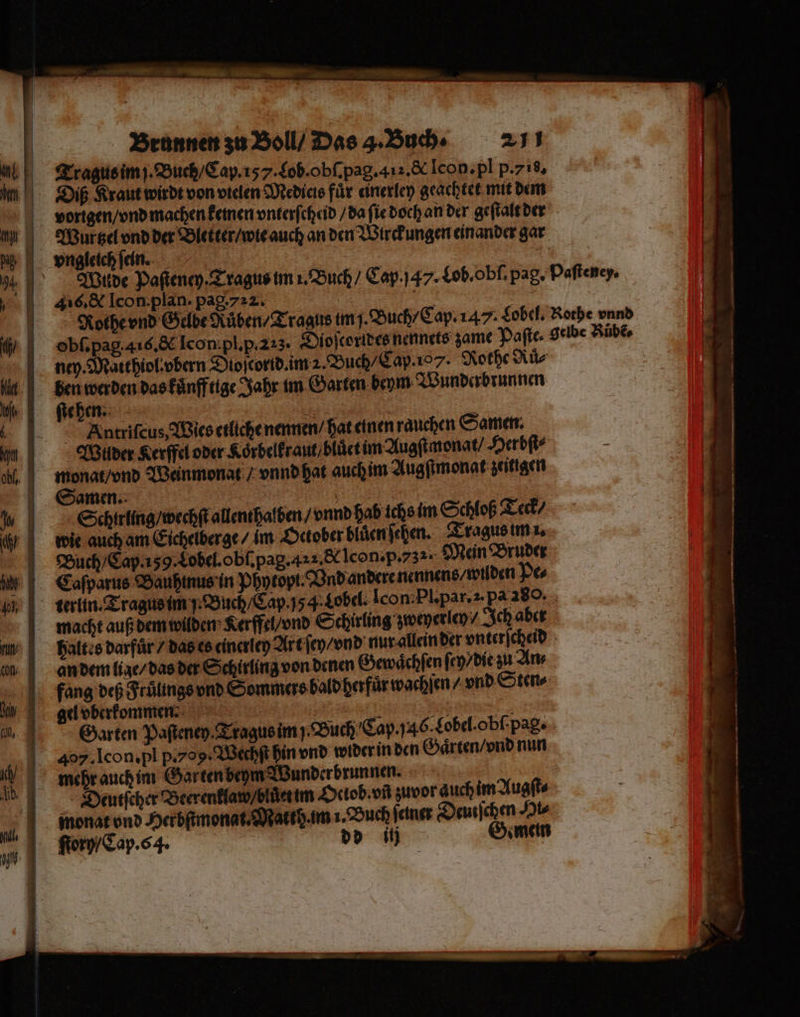 Brunnen zu Boll/ Das 4.Buch. 211
Tragus im 1.Buch/Cap.157.Lob.obſ.pag.412.& Icon.pl p.718.
Diß Kraut wirdt von vielen Medicis für einerley geachtet mit dem
vorigen/vnd machen keinen vnterſcheid /da ſie doch an der geſtalt der
Wurtzel vnd der Bletter/wie auch an den Wirckungen einander gar
vngleich ſein.
Wilde Paſteney.Tragus im 1.Buch/ Cap.147.Lob.obſ. pag. Paſteney.
416.& Icon.plan. pag.722.
Rothe vnd Gelbe Rüben/Tragus im 1.Buch/Cap.147. Lobel. Rothe vnnd
obſ.pag.416.& Icon.pl.p.223. Dioſcorides nennets zame Paſte- gelbe Rübē.
ney.Matthiol.vbern Dioſcorid.im 2.Buch/Cap.107. Rothe Rü-
ben werden das künfftige Jahr im Garten beym Wunderbrunnen
ſtehen.
Antriſcus,Wies etliche nennen/ hat einen rauchen Samen.
Wilder Kerffel oder Körbelkraut/blüet im Augſtmonat/ Herbſt-
monat/vnd Weinmonat / vnnd hat auch im Augſtmonat zeitigen
Samen.
Schirling/wechſt allenthalben/vnnd hab ichs im Schloß Teck/
wie auch am Eichelberge / im October blüen ſehen. Tragus im 1.
Buch/Cap.159.Lobel.obſ.pag.422.& Icon.p.732. Mein Bruder
Caſparus Bauhinus in Phytopi.Vnd andere nennens/wilden Pe-
terlin.Tragus im 1.Buch/Cap.154.Lobel. Icon.Pl.par.2.pa 280.
macht auß dem wilden Kerffel/vnd Schirling zweyerley/ Ich aber
halt es darfür / das es einerley Art ſey/vnd nur allein der vnterſcheid
an dem lige/das der Schirling von denen Gewächſen ſey/die zu An-
fang deß Frülings vnd Sommers bald herfür wachſen / vnd Sten-
gel vberkommen.
Garten Paſteney.Tragus im 1.Buch Cap.146.Lobel.obſ.pag.
407.Icon.pl p.709.Wechſt hin vnd wider in den Gärten/vnd nun
mehr auch im Garten beym Wunderbrunnen.
Deutſcher Beerenklaw/blüet im Octob.vñ zuvor auch im Augſt-
monat vnd Herbſtmonat.Matth.im 1.Buch ſeiner Deutſchen Hi-
ſtory/Cap.64.
dd iij Gemein